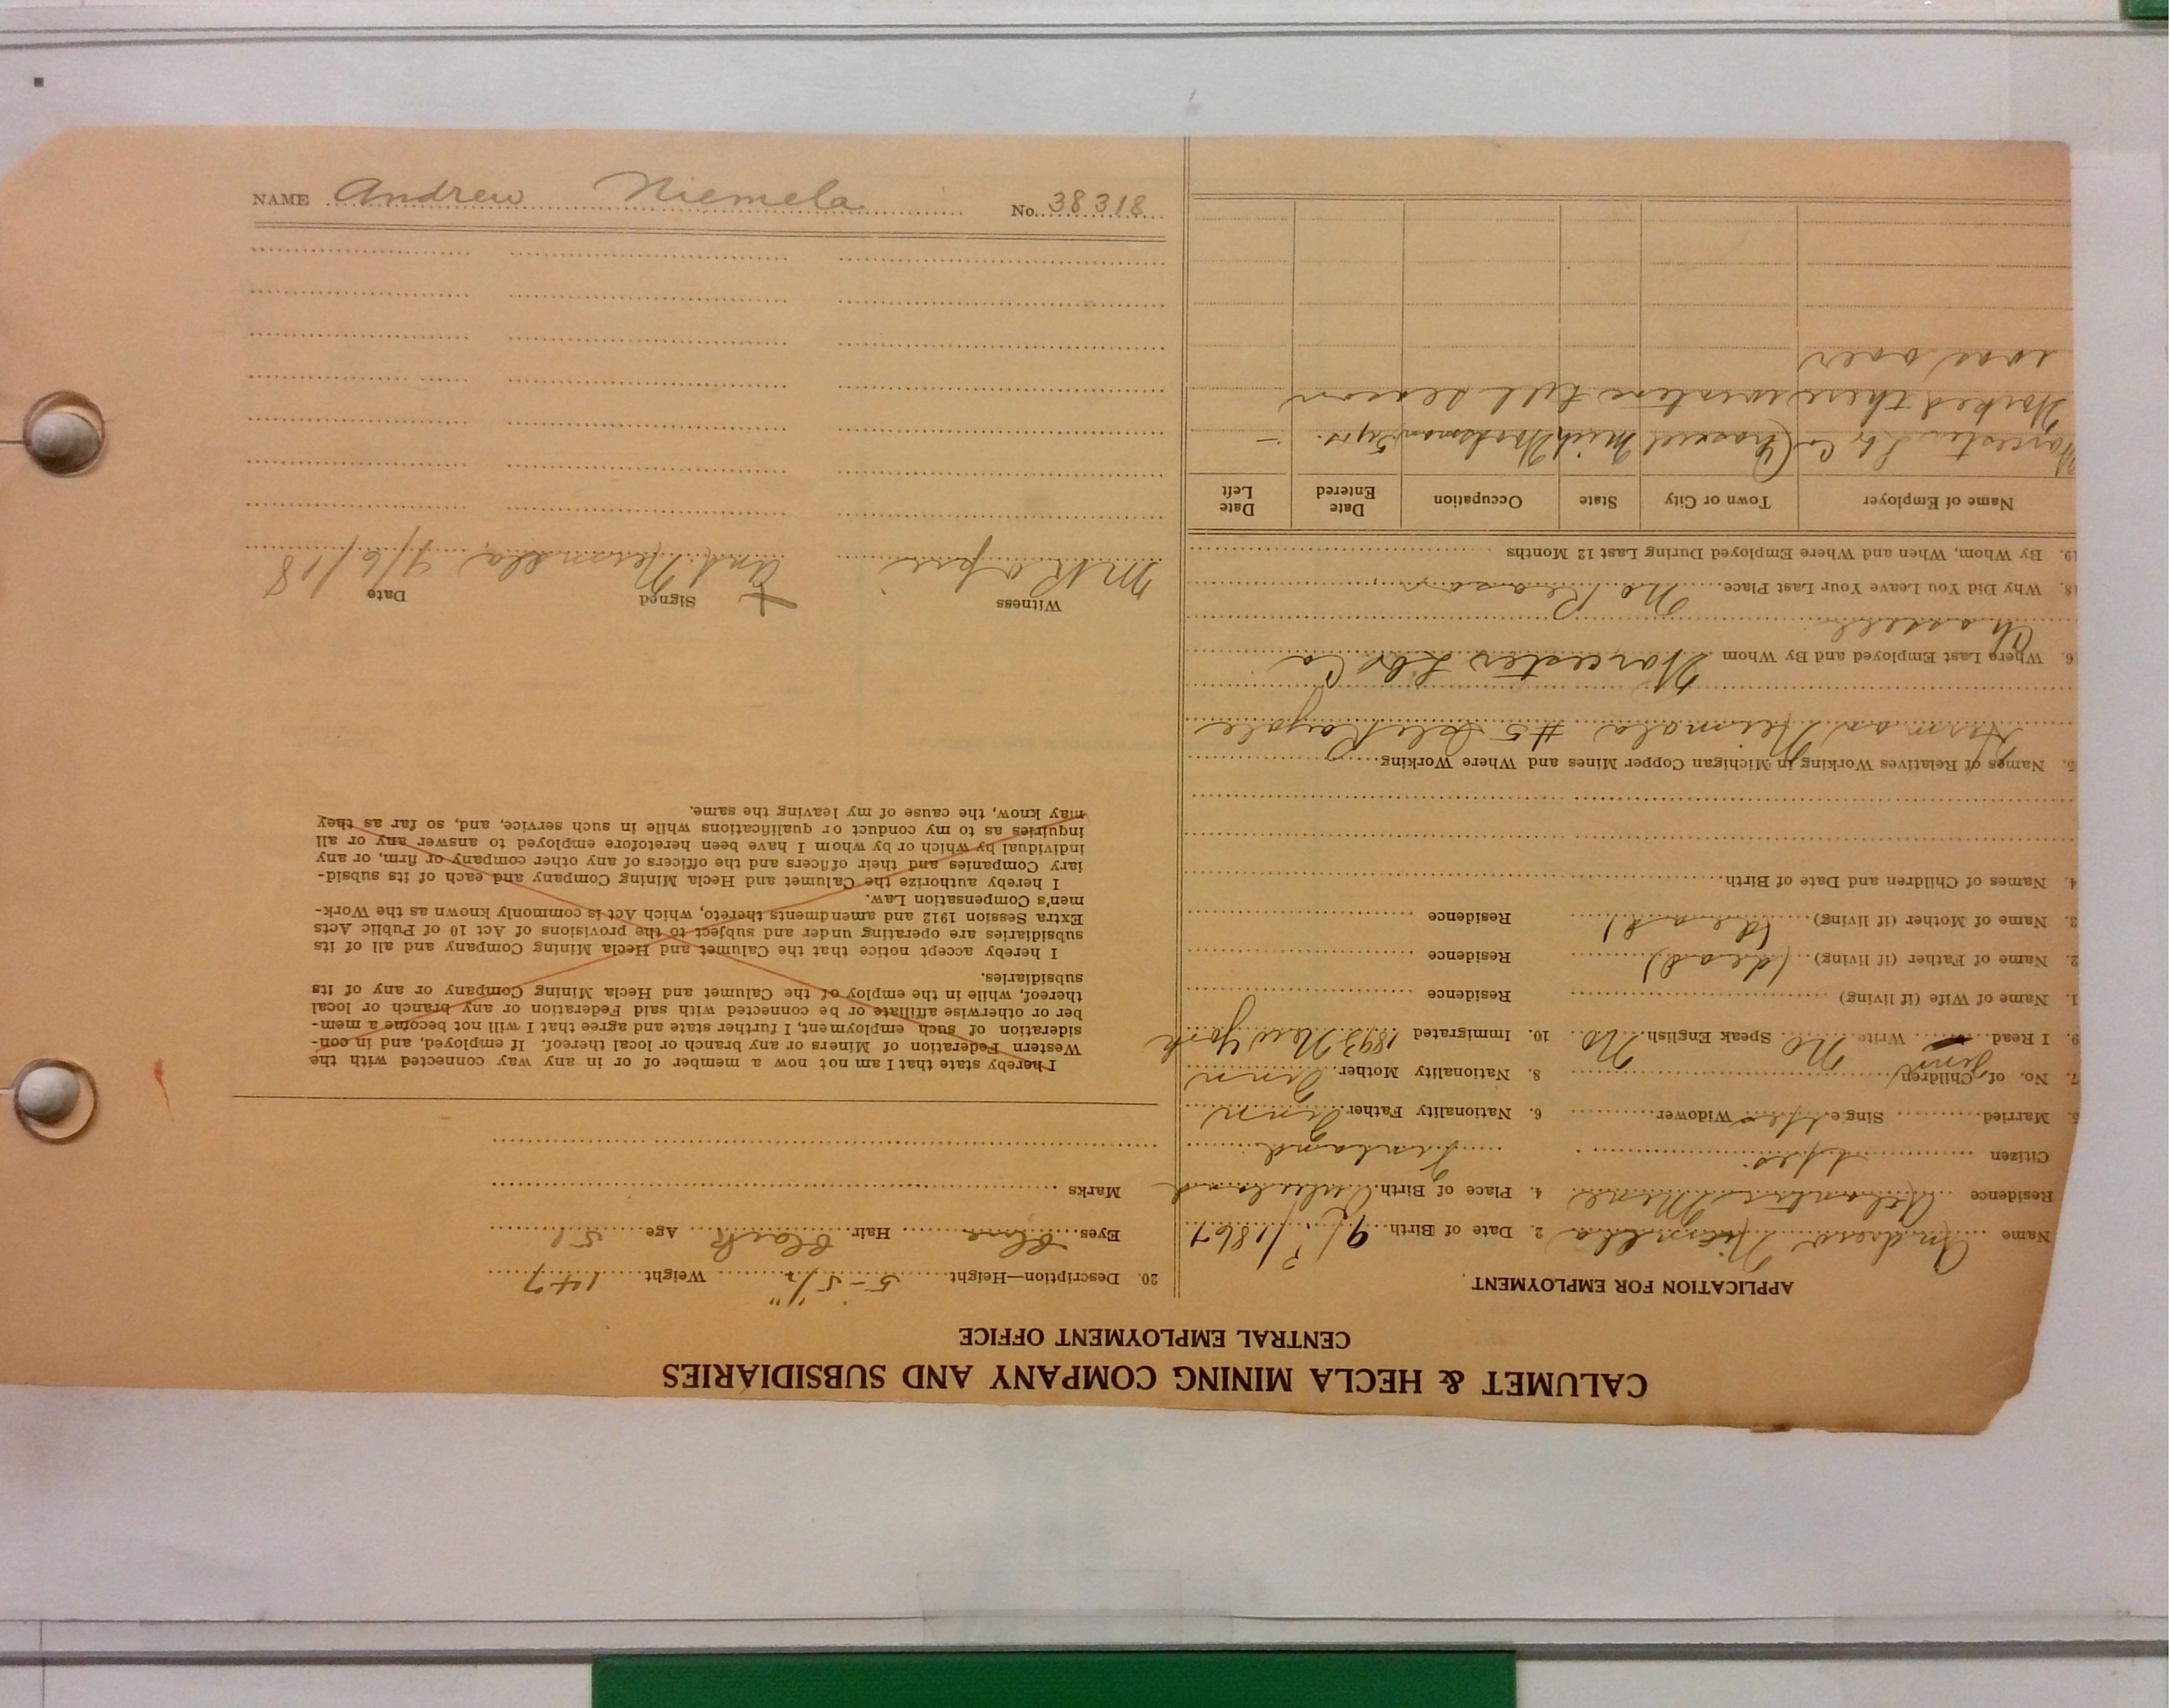 NAME Andrew Niemela No. 38318
CALUMET & HECLA MINING COMPANY AND SUBSIDIARIES
CENTRAL EMPLOYMENT OFFICE
APPLICATION FOR EMPLOYMENT
Name Andrew 2. Date of Birth 9/?/1867
Residence Atlantic Mine 4. Place of Birth
Citizen Yes. Finland
5. Married Single Yes Widower 6. Nationality Father Finn
7. No. of Children 8. Nationality Mother Finn
9. I Read Finn Write No Speak English No 10. Immigrated 1893 New York
1. Name of Wife (if living) Residence
2. Name of Father (if living) (dead) Residence
3. Name of Mother (if living) (dead) Residence
4. Names of Children and Date of Birth
5. Names of Relatives Working in Michigan Copper Mines and Where Working
Herman Neimala #5 Isle Royale
6. Where Last Employed and By Whom Worcester Lbr Co
Chassell
18. Why Did You Leave Your Last Place No Reason
19. By Whom, When and Where Employed During Last 12 Months
Name of Employer Town or City State Occupation Date Entered Date Left
Worcester Lbr Co Chassell Mich Woodsman 5 yrs. –
Worked there till season
was over
20. Description—Height 5-5½" Weight 147
Eyes Blue Hair Black Age 51
Marks
I hereby state that I am not now a member of or in any way connected with the
Western Federation of Miners or any branch or local thereof. If employed, and in con-
sideration of such employment, I further state and agree that I will not become a mem-
ber or otherwise affiliate or be connected with said Federation or any branch or local
thereof, while in the employ of the Calumet and Hecla Mining Company or any of its
subsidiaries.
I hereby accept notice that the Calumet and Hecla Mining Company and all of its
subsidiaries are operating under and subject to the provisions of Act 10 of Public Acts
Extra Session 1912 and amendments thereto, which Act is commonly known as the Work-
men's Compensation Law.
I hereby authorize the Calumet and Hecla Mining Company and each of its subsid-
iary Companies and their officers and the officers of any other company or firm, or any
individual by which or by whom I have been heretofore employed to answer any or all
inquiries as to my conduct or qualifications while in such service, and, so far as they
may know, the cause of my leaving the same.
Witness Signed Date
And. 9/6/18